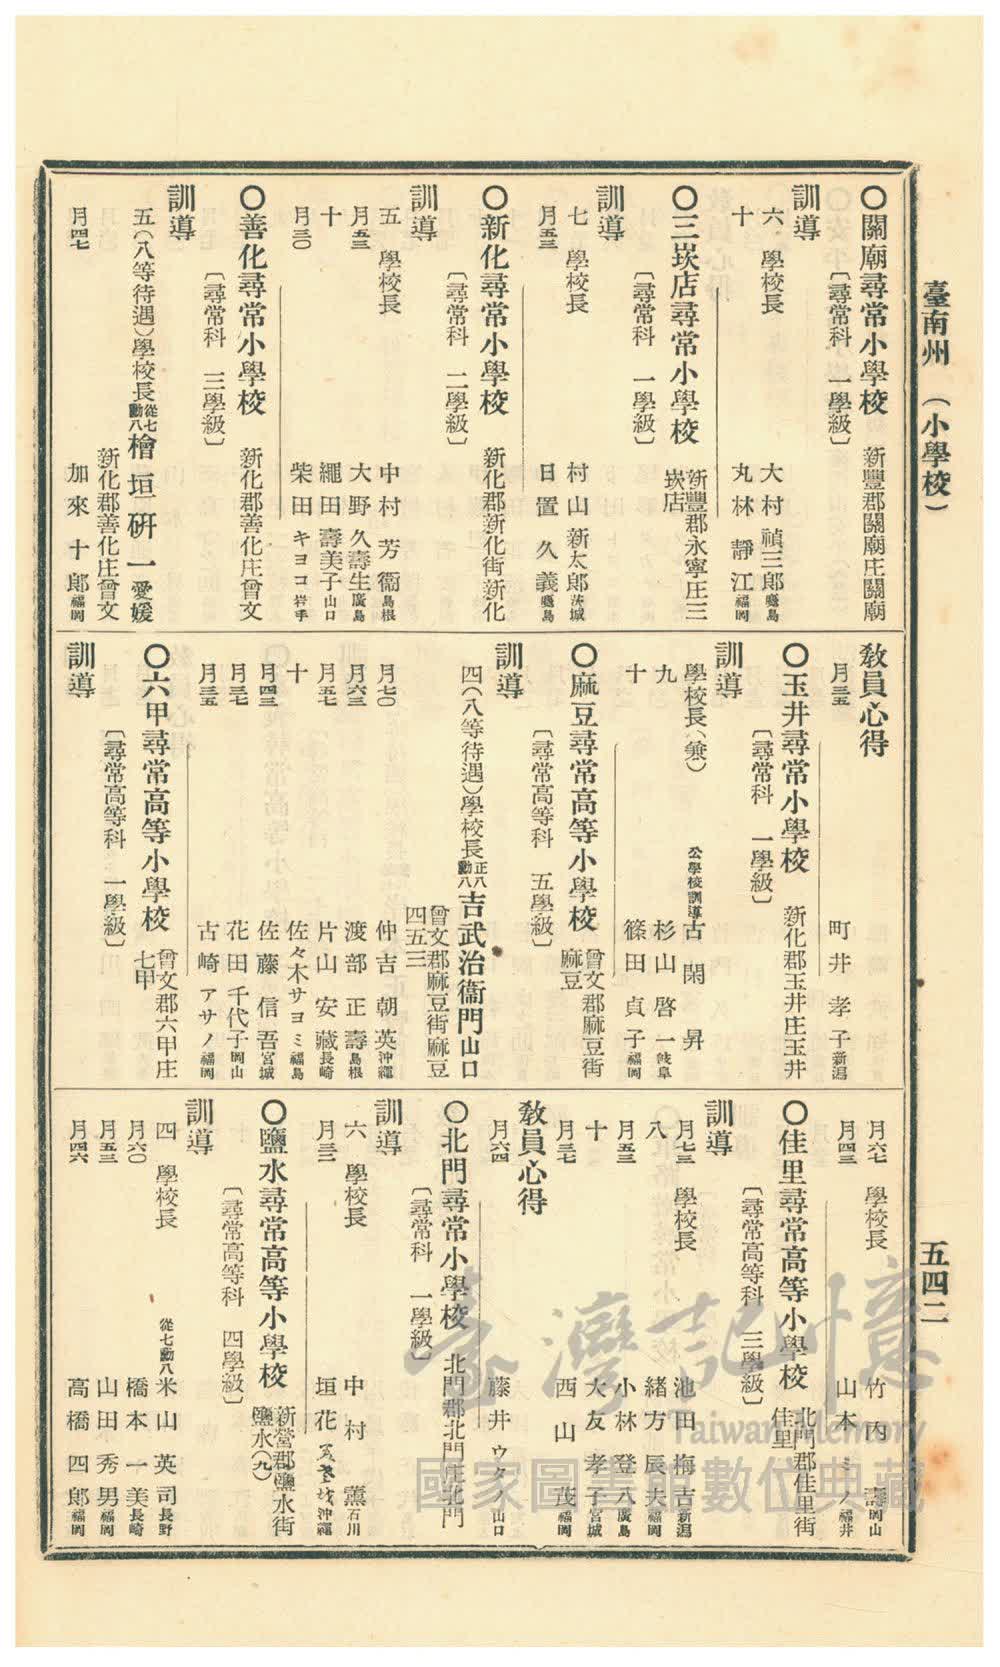 臺南州 (小學校)
五四二
〇關廟尋常小學校 新豐郡關廟庄關廟
〔尋常科 一學級〕
訓導
六 學校長 大村禎三郎 廣島
十 丸林靜江 福岡
〇三崁店尋常小學校 新豐郡永寧庄三崁店
〔尋常科 一學級〕
訓導
七 學校長 村山新太郎 茨城
月五三 日置久義 廣島
〇新化尋常小學校 新化郡新化街新化
〔尋常科 二學級〕
訓導
五 學校長 中村芳衞 島根
月五三 大野久壽生 廣島
十 繩田壽美子 山口
月三〇 柴田キヨコ 岩手
〇善化尋常小學校 新化郡善化庄曾文
〔尋常科 三學級〕
訓導
五(八等待遇)學校長 從七勳八 檜垣硏一 愛媛
新化郡善化庄曾文
月四七 加來十郎 福岡
教員心得
月三五 町井孝子 新潟
〇玉井尋常小學校 新化郡玉井庄玉井
〔尋常科 一學級〕
訓導
學校長(兼) 公學校訓導 古閑昇
九 杉山啓一 岐阜
十 篠田貞子 福岡
〇麻豆尋常高等小學校 曾文郡麻豆街麻豆
〔尋常高等科 五學級〕
訓導
四(八等待遇)學校長 正八勳八 吉武治衞門 山口
曾文郡麻豆街麻豆四五三
月七〇 仲吉朝英 沖繩
月六三 渡部正壽 島根
月五七 片山安藏 長崎
十 佐々木サヨミ 福島
月四三 佐藤信吾 宮城
月三七 花田千代子 岡山
月三五 古崎アサノ 福岡
〇六甲尋常高等小學校 曾文郡六甲庄七甲
〔尋常高等科 一學級〕
訓導
月六七 學校長 竹內壽 岡山
月四三 山本ミ 福井
〇佳里尋常高等小學校 北門郡佳里街佳里
〔尋常高等科 三學級〕
訓導
月七三 學校長 池田梅吉 新潟
八 緒方辰夫 福岡
月五三 小林登八 廣島
十 大友孝子 宮城
月三七 西山茂 福岡
教員心得
月六四 藤井ウタ 山口
〇北門尋常小學校 北門郡北門庄北門
〔尋常科 一學級〕
訓導
六 學校長 中村薰 石川
月三二 垣花 沖繩
〇鹽水尋常高等小學校 新營郡鹽水街鹽水(九)
〔尋常高等科 四學級〕
訓導
四 學校長 從七勳八 米山英司 長野
月六〇 橋本一美 長崎
月五三 山田秀男 福岡
月四六 高橋四郎 福岡
臺灣記憶
Taiwan Memory
國家圖書館數位典藏